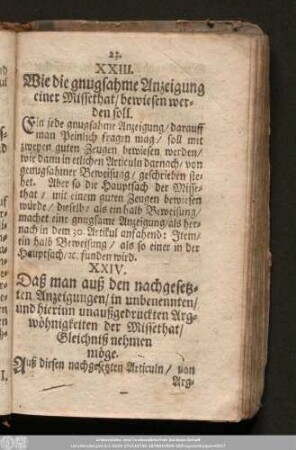 23.
XXIII.
Wie die gnugsahme Anzeigung
einer Missethat/ bewiesen wer-
den soll.
Ein jede gnugsahme Anzeigung/ darauff
man Peinlich fragen mag/ soll mit
zweyen guten Zeugen bewiesen werden/
wie dann in etlichen Articuln darnach/ von
genugsahmer Beweisung/ geschrieben ste-
het. Aber so die Hauptsach der Misse-
that/ mit einem guten Zeugen bewiesen
würde/ dieselb/ als ein halb Beweisung/
machet eine gnugsame Anzeigung/ als her-
nach in dem 30. Artikul anfahend: Item/
ein halb Beweisung/ als so einer in der
Hauptsach/ ꝛc. funden wird.
XXIV.
Daß man auß den nachgesetz-
ten Anzeigungen/ in unbenennten/
und hierinn unaußgedruckten Arg-
wöhnigkeiten der Missethat/
Gleichniß nehmen
möge.
Auß diesen nachgesetzten Articuln/ von
Arg-